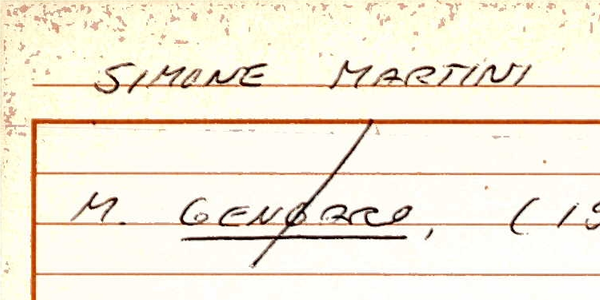 SIMONE MARTINI
M. GENGARO, (19